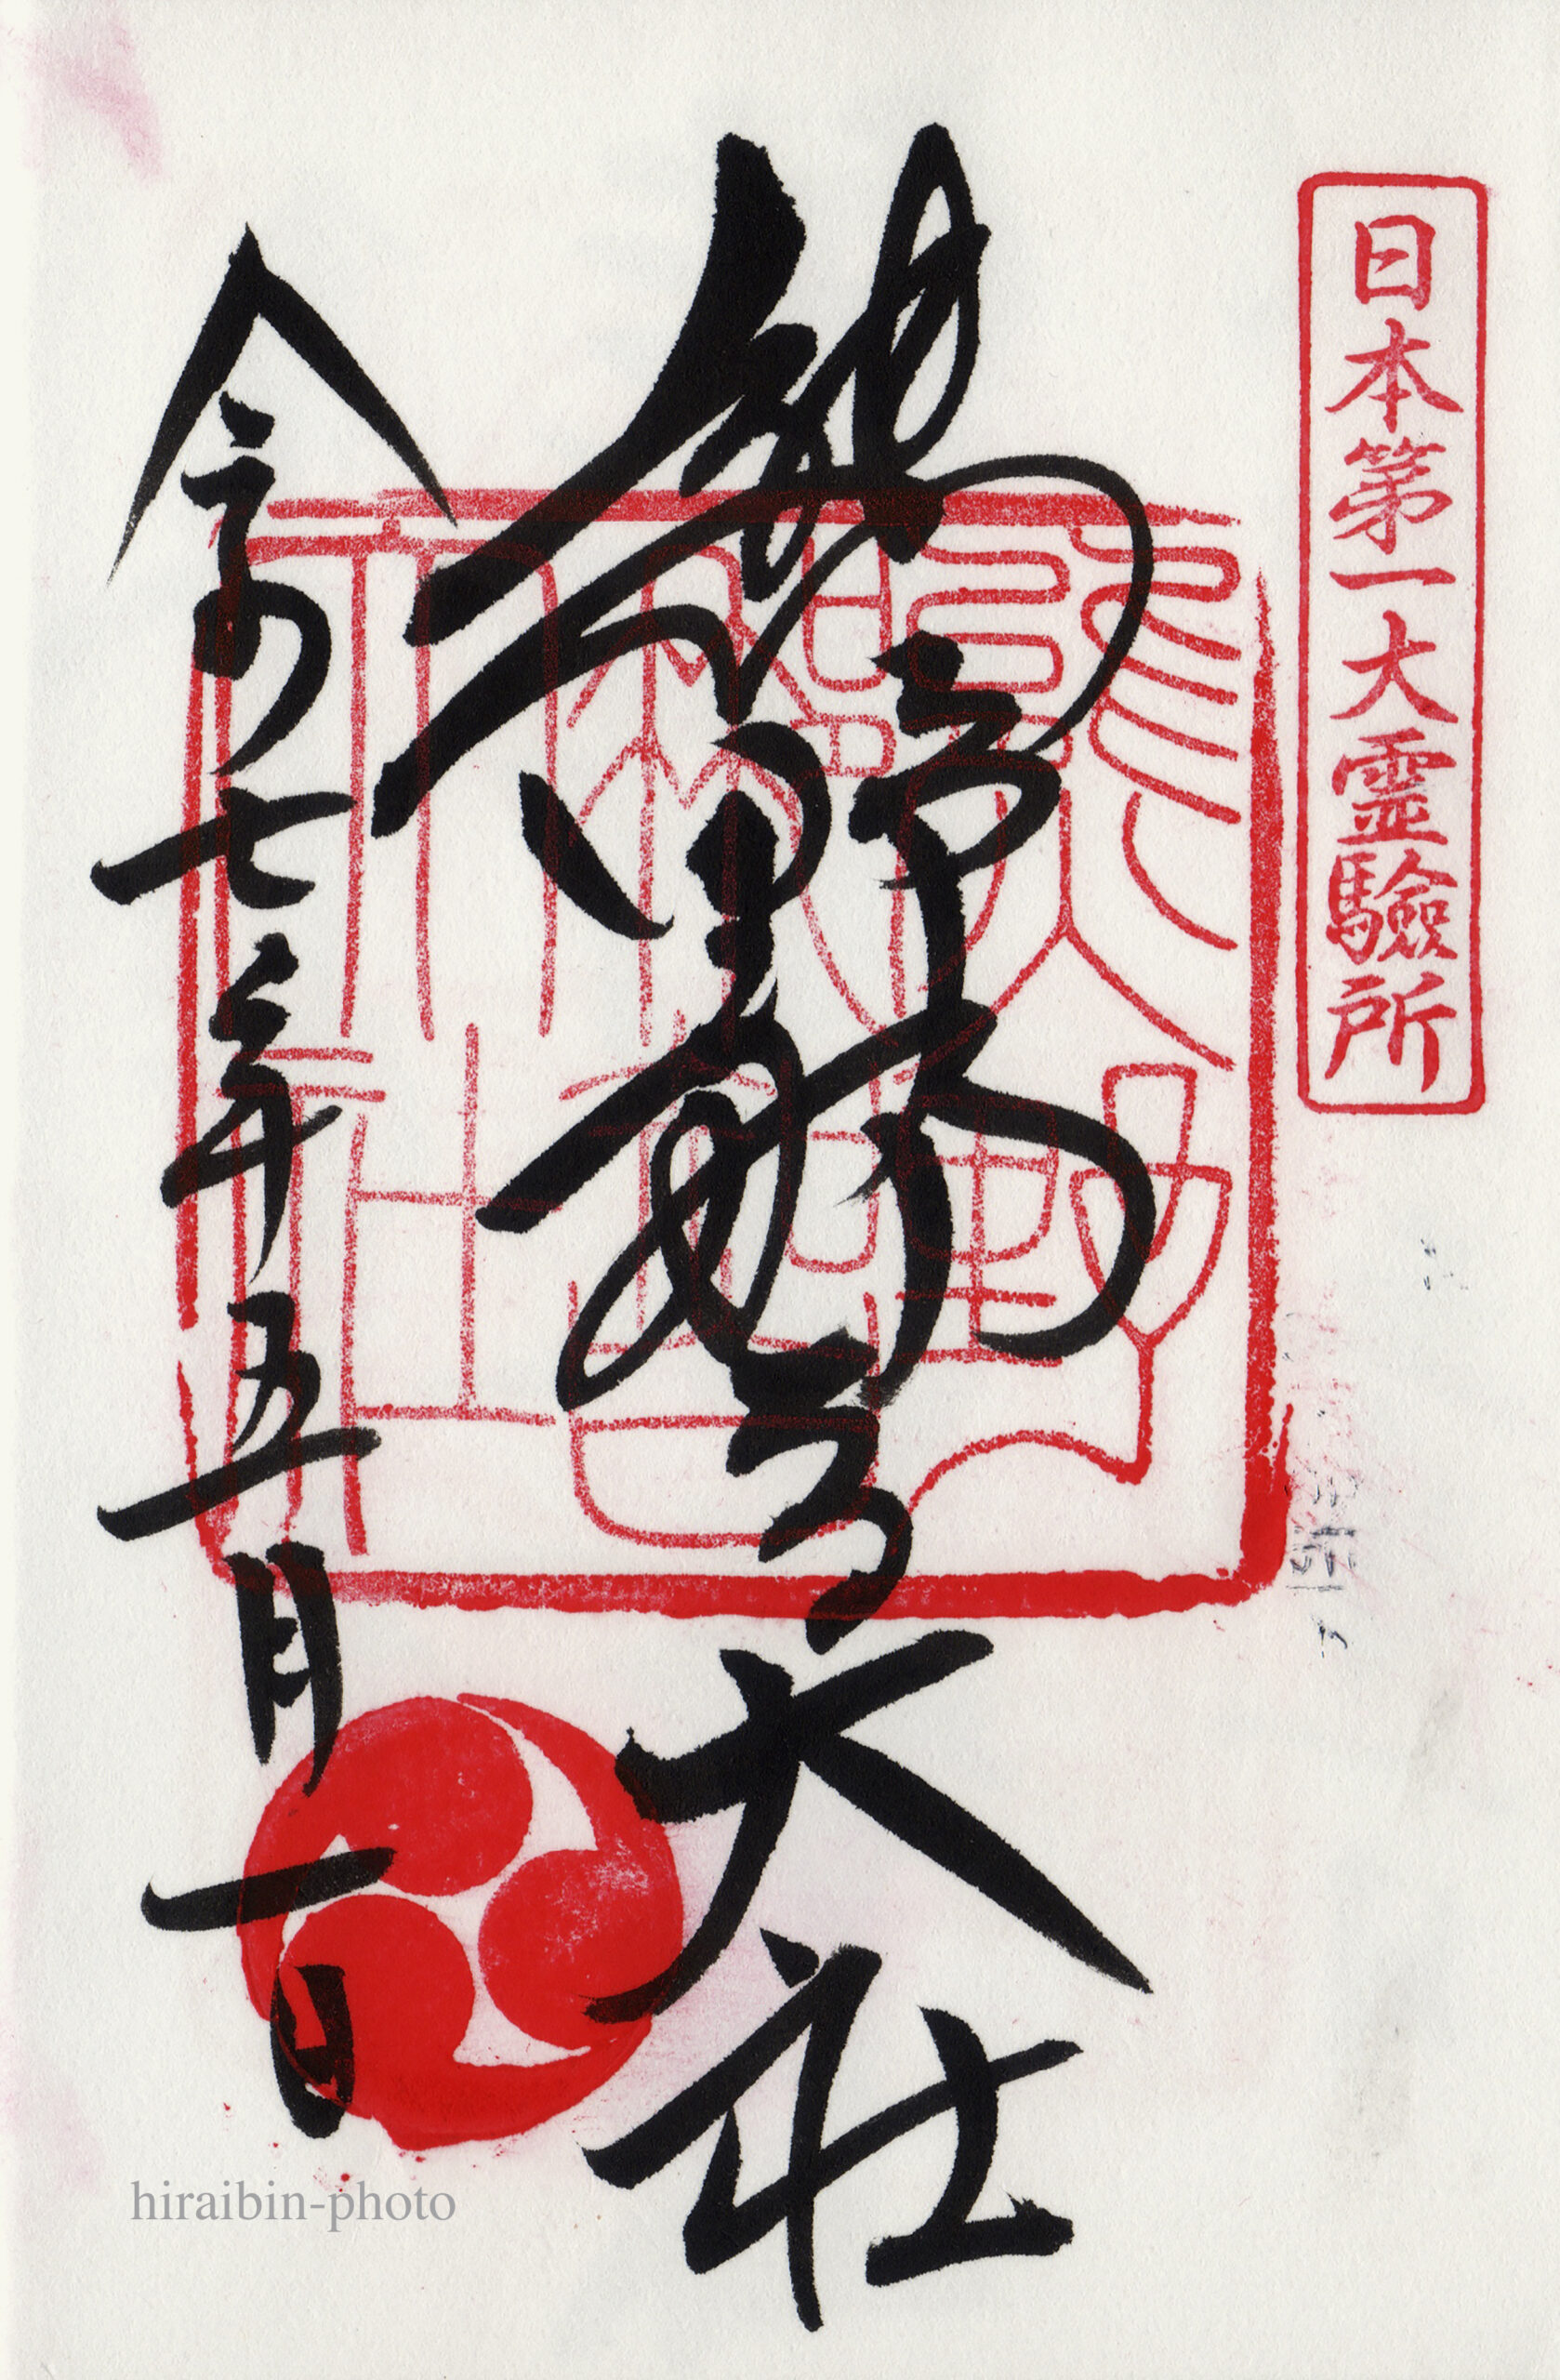 日本第一大霊験所
熊野大社
令和七年五月一日
hiraibin-photo